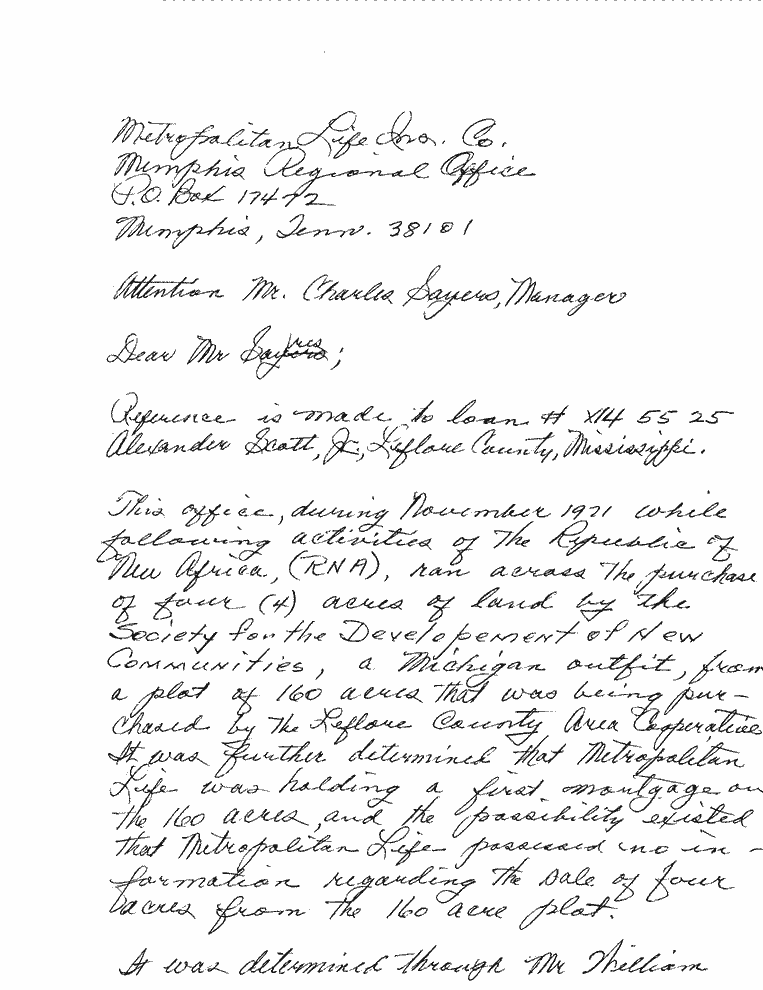 Metropolitan Life Ins. Co.
Memphis Regional Office
P.O. Box 17472
Memphis, Tenn. 38101
Attention Mr. Charles Sayers, Manager
Dear Mr Sayres;
Reference is made to loan # X14 55 25
Alexander Scott, Jr., Leflore County, Mississippi.
This office, during November 1971 while
following activities of The Republic of
New Africa, (RNA), ran across The purchase
of four (4) acres of land by The
Society for the Developement of New
Communities, a Michigan outfit, from
a plot of 160 acres That was being pur-
chased by The Leflore County Area Cooperative
It was further determined that Metropolitan
Life was holding a first mortgage on
the 160 acres, and the possibility existed
that Metropolitan Life possessed no in-
formation regarding The sale of four
acres from The 160 acre plot.
It was determined through Mr William